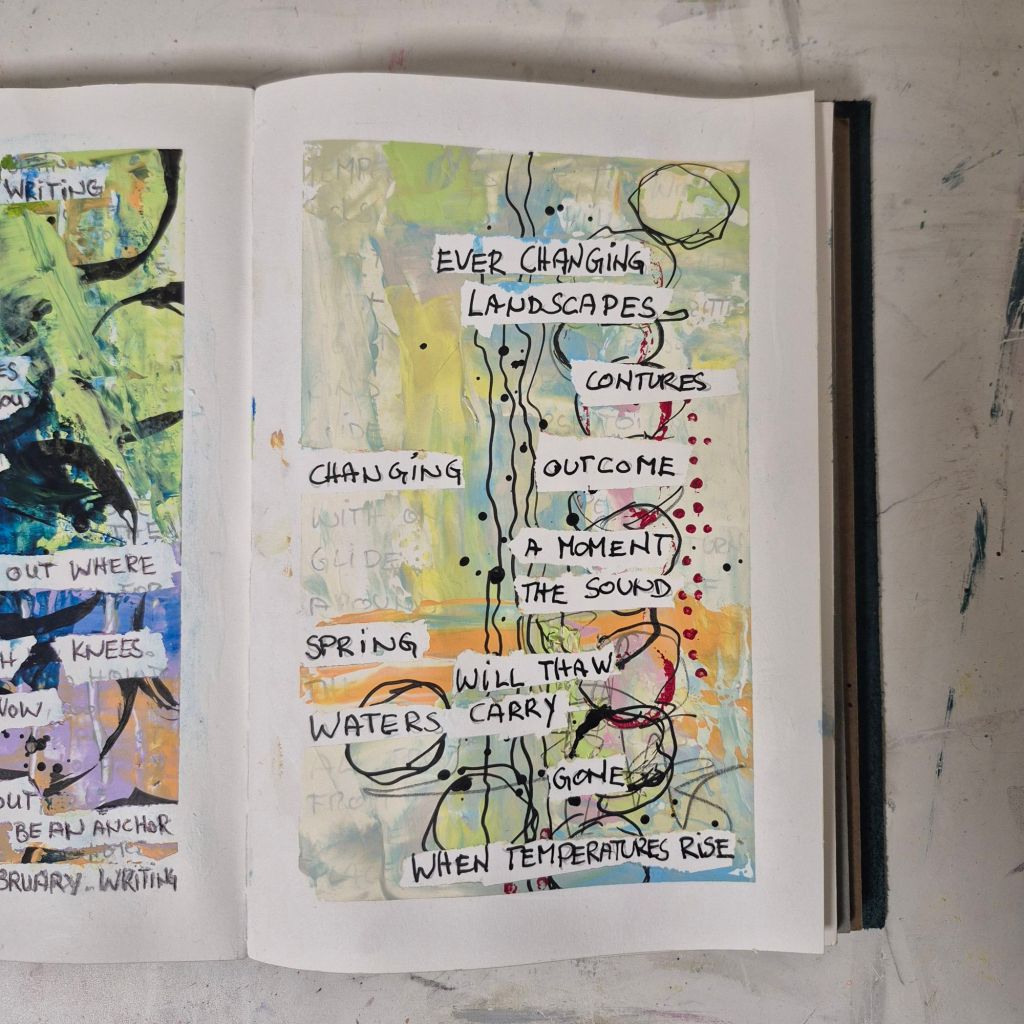 WRITING
OUT WHERE
KNEES
BE AN ANCHOR
WRITING
EVER CHANGING
LANDSCAPES
CONTURES
CHANGING OUTCOME
WITH
GLIDE
A MOMENT
THE SOUND
SPRING
WILL THAW
WATERS CARRY
GONE
WHEN TEMPERATURES RISE